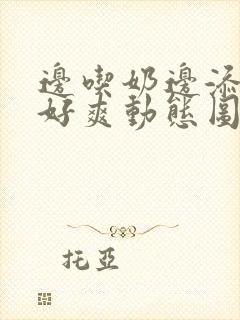 邊喫奶邊添
好爽動態圖
托亞